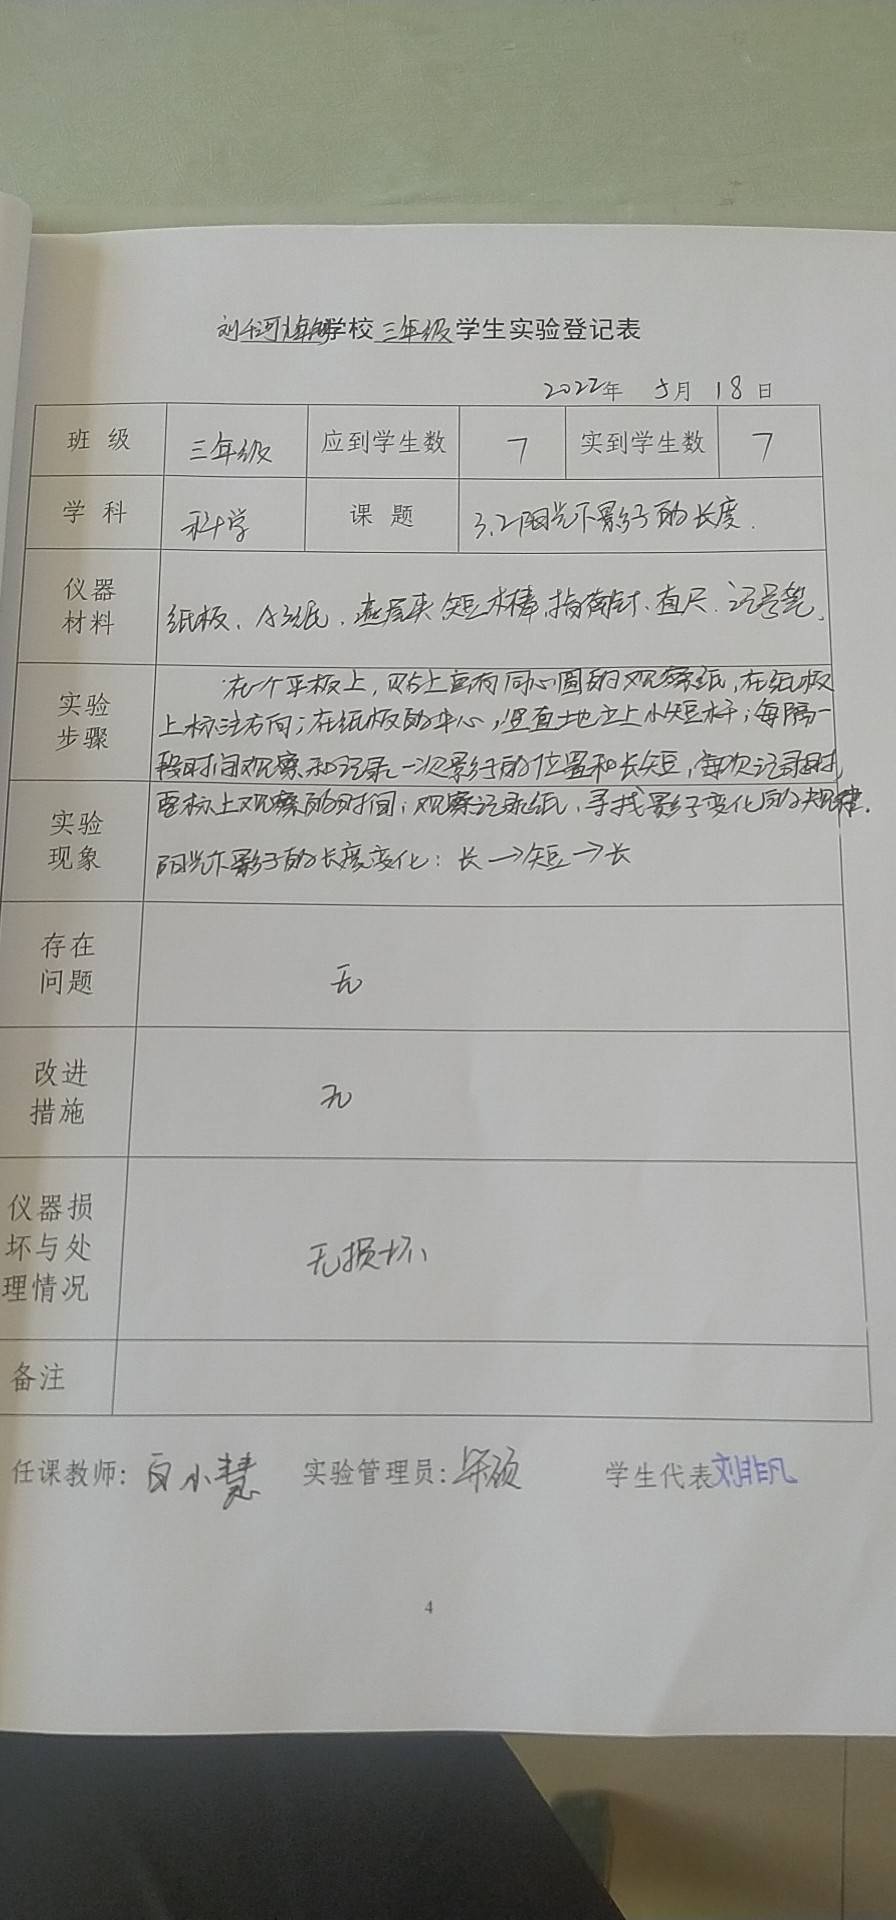 刘千河 学校 三年级 学生实验登记表
2022年 5月 18日
班级 三年级 应到学生数 7 实到学生数 7
学科 科学 课题 3.2阳光下影子的长度.
仪器材料 纸板、A3纸、燕尾夹 短木棒、指南针、直尺、记号笔。
实验步骤 在一个平板上,贴上画有同心圆的观察纸,在纸板
上标注方向;在纸板的中心,竖直地立上小短杆;每隔一
段时间观察和记录一次影子的位置和长短,每次记录时,
要标上观察的时间;观察记录纸,寻找影子变化的规律.
实验现象 阳光下影子的长度变化:长→短→长
存在问题 无
改进措施 无
仪器损坏与处理情况 无损坏
备注
任课教师: 白小慧 实验管理员: 学生代表 刘非凡
4